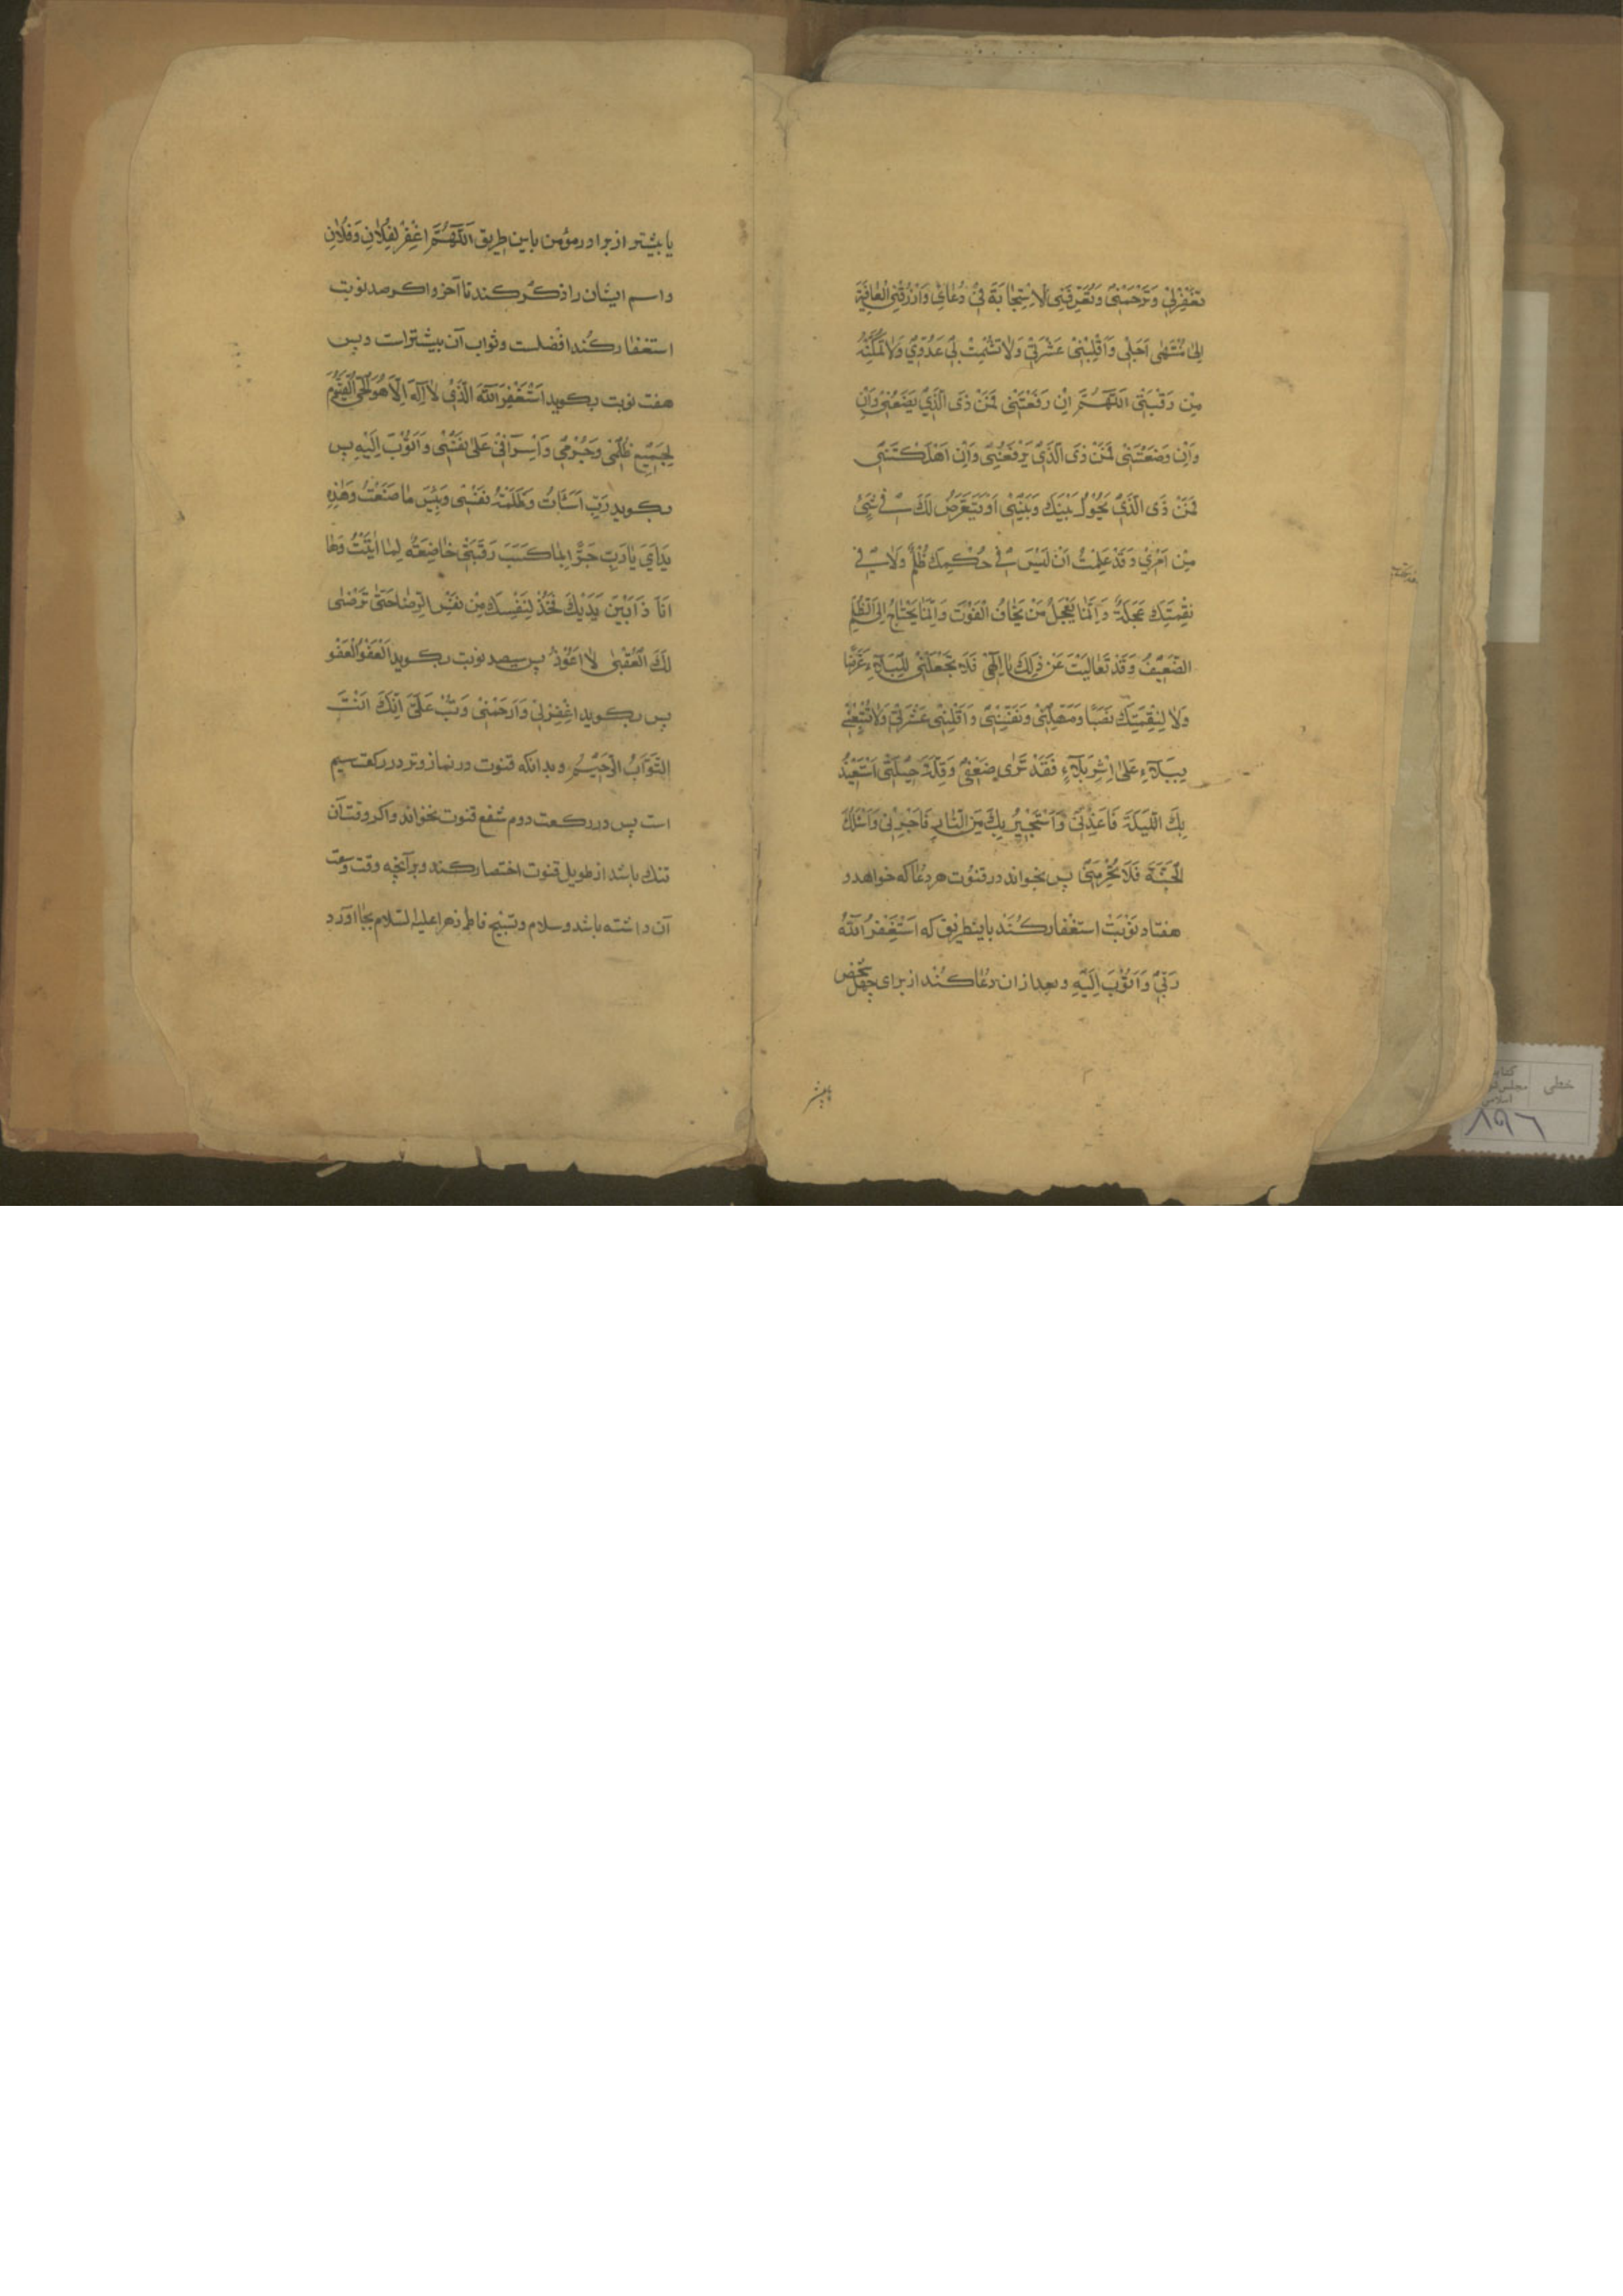 تَغْفِرْلِي وَتَرْحَمَنِي وَتُعَرِّفَنِي الْاِسْتِجَابَةَ فِي دُعَائِي وَارْزُقْنِي الْعَافِيَةَ
اِلَى مُنْتَهَى اَجَلِي وَاَقِلْنِي عَثْرَتِي وَلَا تُشْمِتْ بِي عَدُوِّي وَلَا تُمَكِّنْهُ
مِنْ رَقَبَتِي اَللّٰهُمَّ اِنْ رَفَعْتَنِي فَمَنْ ذَی الَّذِي يَضَعُنِي وَاِنْ
وَاِنْ وَضَعْتَنِي فَمَنْ ذَی الَّذِي يَرْفَعُنِي وَاِنْ اَهْلَكْتَنِي
فَمَنْ ذَی الَّذِي يَحُوْلُ بَيْنَكَ وَبَيْنِي اَوْ يَتَعَرَّضُ لَكَ فِي شَيْءٍ
مِنْ اَمْرِي وَقَدْ عَلِمْتُ اَنْ لَيْسَ فِي حُكْمِكَ ظُلْمٌ وَلَا فِي
نِقْمَتِكَ عَجَلَةٌ وَاِنَّمَا يَعْجَلُ مَنْ يَخَافُ الْفَوْتَ وَاِنَّمَا يَحْتَاجُ اِلَى الظُّلْمِ
الضَّعِيْفُ وَقَدْ تَعَالَيْتَ عَنْ ذٰلِكَ يَا اِلٰهِي فَلَا تَجْعَلْنِي لِلْبَلَاۤءِ غَرَضًا
وَلَا لِنِقْمَتِكَ نَصَبًا وَمَهِّلْنِي وَنَفِّسْنِي وَاَقِلْنِي عَثْرَتِي وَلَا تُتْبِعْنِي
بِبَلَاۤءٍ عَلَى اِثْرِ بَلَاۤءٍ فَقَدْ تَرَى ضَعْفِي وَقِلَّةَ حِيْلَتِي اَسْتَعِيْذُ
بِكَ اللَّيْلَةَ فَاَعِذْنِي وَاَسْتَجِيْرُ بِكَ مِنَ النَّارِ فَاَجِرْنِي وَاَسْئَلُكَ
الْجَنَّةَ فَلَا تَحْرِمْنِي پس بخواند در قنوت هر دعا که خواهد و
هفتاد نَوْبَتْ استغفار کُنَد باینطریق که اَسْتَغْفِرُ اللّٰهَ
رَبِّي وَاَتُوْبُ اِلَيْهِ و بعد از ان دُعا کُند از برای چهل شخص
یا بیشتر
یا بیشتر از برادر مؤمن باین طریق اَللّٰهُمَّ اغْفِرْ لِفُلَانٍ وَفُلَانٍ
و اسم ایشان را ذکر کند تا آخر و اکر صد نوبت
استغفار کُند افضلست و ثواب آن بیشتر است و پس
هفت نوبت بکوید اَسْتَغْفِرُ اللّٰهَ الَّذِي لَا اِلٰهَ اِلَّا هُوَ الْحَيُّ الْقَيُّوْمُ
لِجَمِيْعِ ظُلْمِي وَجُرْمِي وَاِسْرَافِي عَلَى نَفْسِي وَاَتُوْبُ اِلَيْهِ پس
بکوید رَبِّ اَسَأْتُ وَظَلَمْتُ نَفْسِي وَبِئْسَ مَا صَنَعْتُ وَهٰذِهِ
يَدَايَ يَا رَبِّ جَزَاۤءً بِمَا كَسَبَ رَقَبَتِي خَاضِعَةٌ لِمَا اَتَيْتُ وَهَا
اَنَا ذَا بَيْنَ يَدَيْكَ فَخُذْ لِنَفْسِكَ مِنْ نَفْسِي الرِّضَا حَتَّى تَرْضَى
لَكَ الْعُقْبَى لَا اَعُوْدُ پس سیصد نوبت بکوید اَلْعَفْوَ الْعَفْو
پس بکوید اِغْفِرْلِي وَارْحَمْنِي وَتُبْ عَلَيَّ اِنَّكَ اَنْتَ
التَّوَّابُ الرَّحِيْمُ و بدانکه قنوت در نماز وتر در رکعت سیم
است پس در رکعت دوم شفع قنوت نخواند و اکر وقت آن
تنك باشد از طویل قنوت اختصار کند و بر آنچه وقت وسعت
آن داشته باشد و سلام و تسبیح فاطمه زهرا علیها السلام بجا اورد
خطی
کتاب
مجلس
اسلامی
۸۹۶